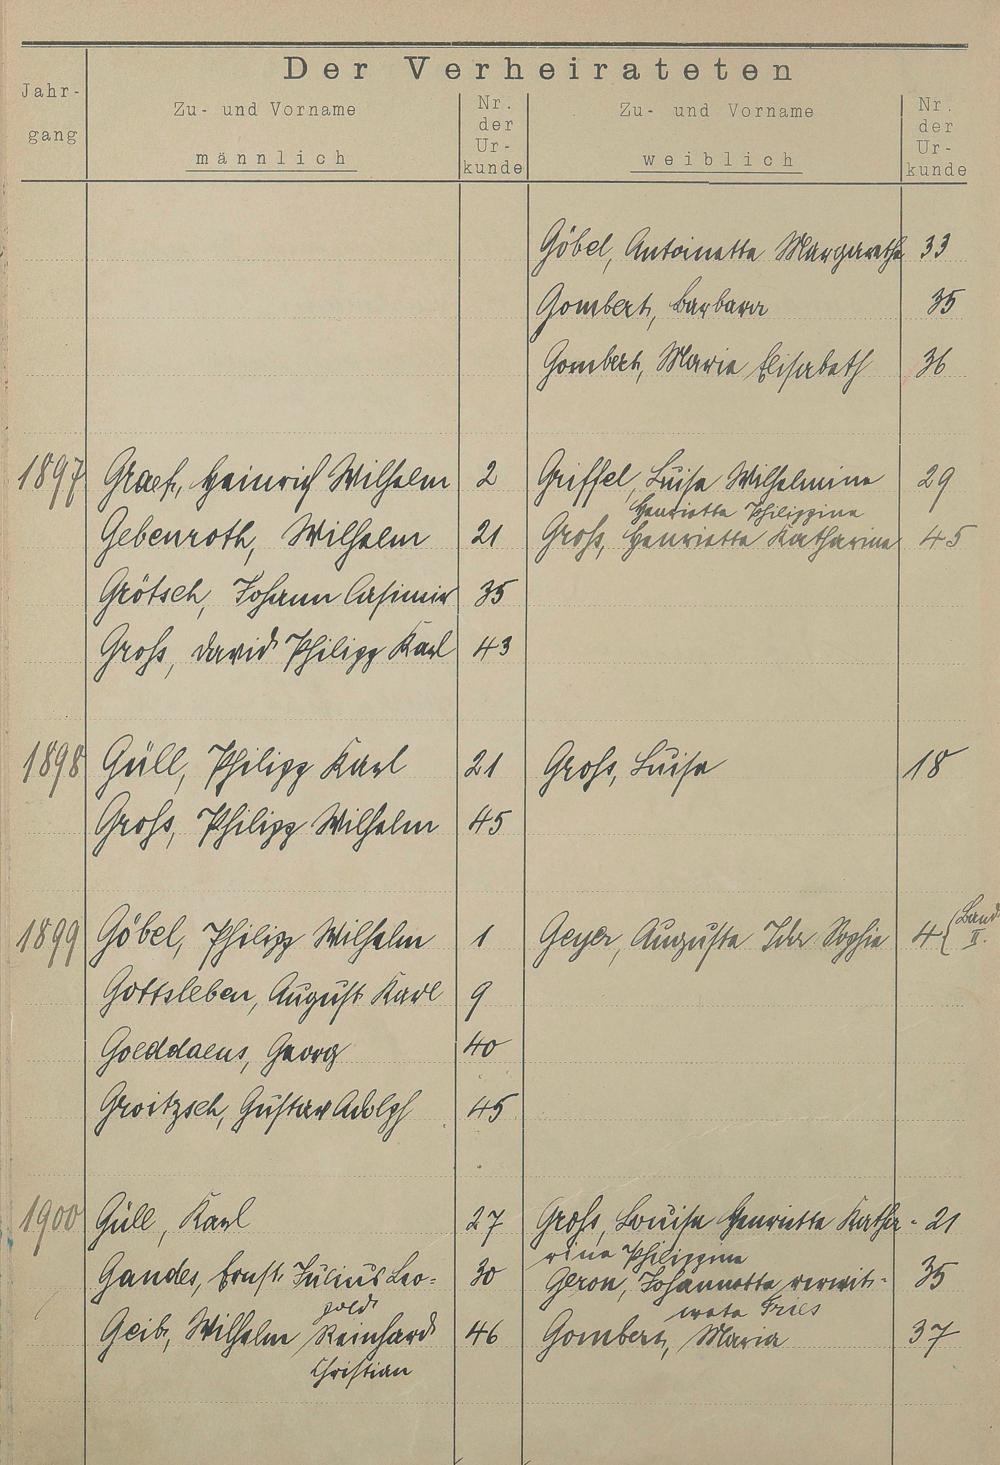 Der Verheirateten
Jahr-
gang
Zu- und Vorname
männlich
Nr.
der
Ur-
kunde
Zu- und Vorname
weiblich
Nr.
der
Ur-
kunde
Göbel, Antoinette Margarethe 33
Gombert, Barbara 35
Gombert, Marie Elisabeth 36
1897 Graef, Heinrich Wilhelm 2 Griffel, Luise Wilhelmine 29
Henriette Philippine
Gebenroth, Wilhelm 21 Groß, Henriette Katharine 45
Grötsch, Johann Casimir 35
Groß, David Philipp Karl 43
1898 Güll, Philipp Karl 21 Groß, Luise 18
Groß, Philipp Wilhelm 45
1899 Göbel, Philipp Wilhelm 1 Geyer, Auguste Ida Sophie 4 (Band
II.
Gottsleben, August Karl 9
Goeddaeus, Georg 40
Groitzsch, Gustav Adolph 45
1900 Güll, Karl 27 Groß, Louise Henriette Katha- 21
rine Philippine
Gandes, Ernst Julius Leo= 30 Geron, Johannette verwit- 35
pold wete Fries
Geib, Wilhelm Reinhard 46 Gombert, Maria 37
Christian